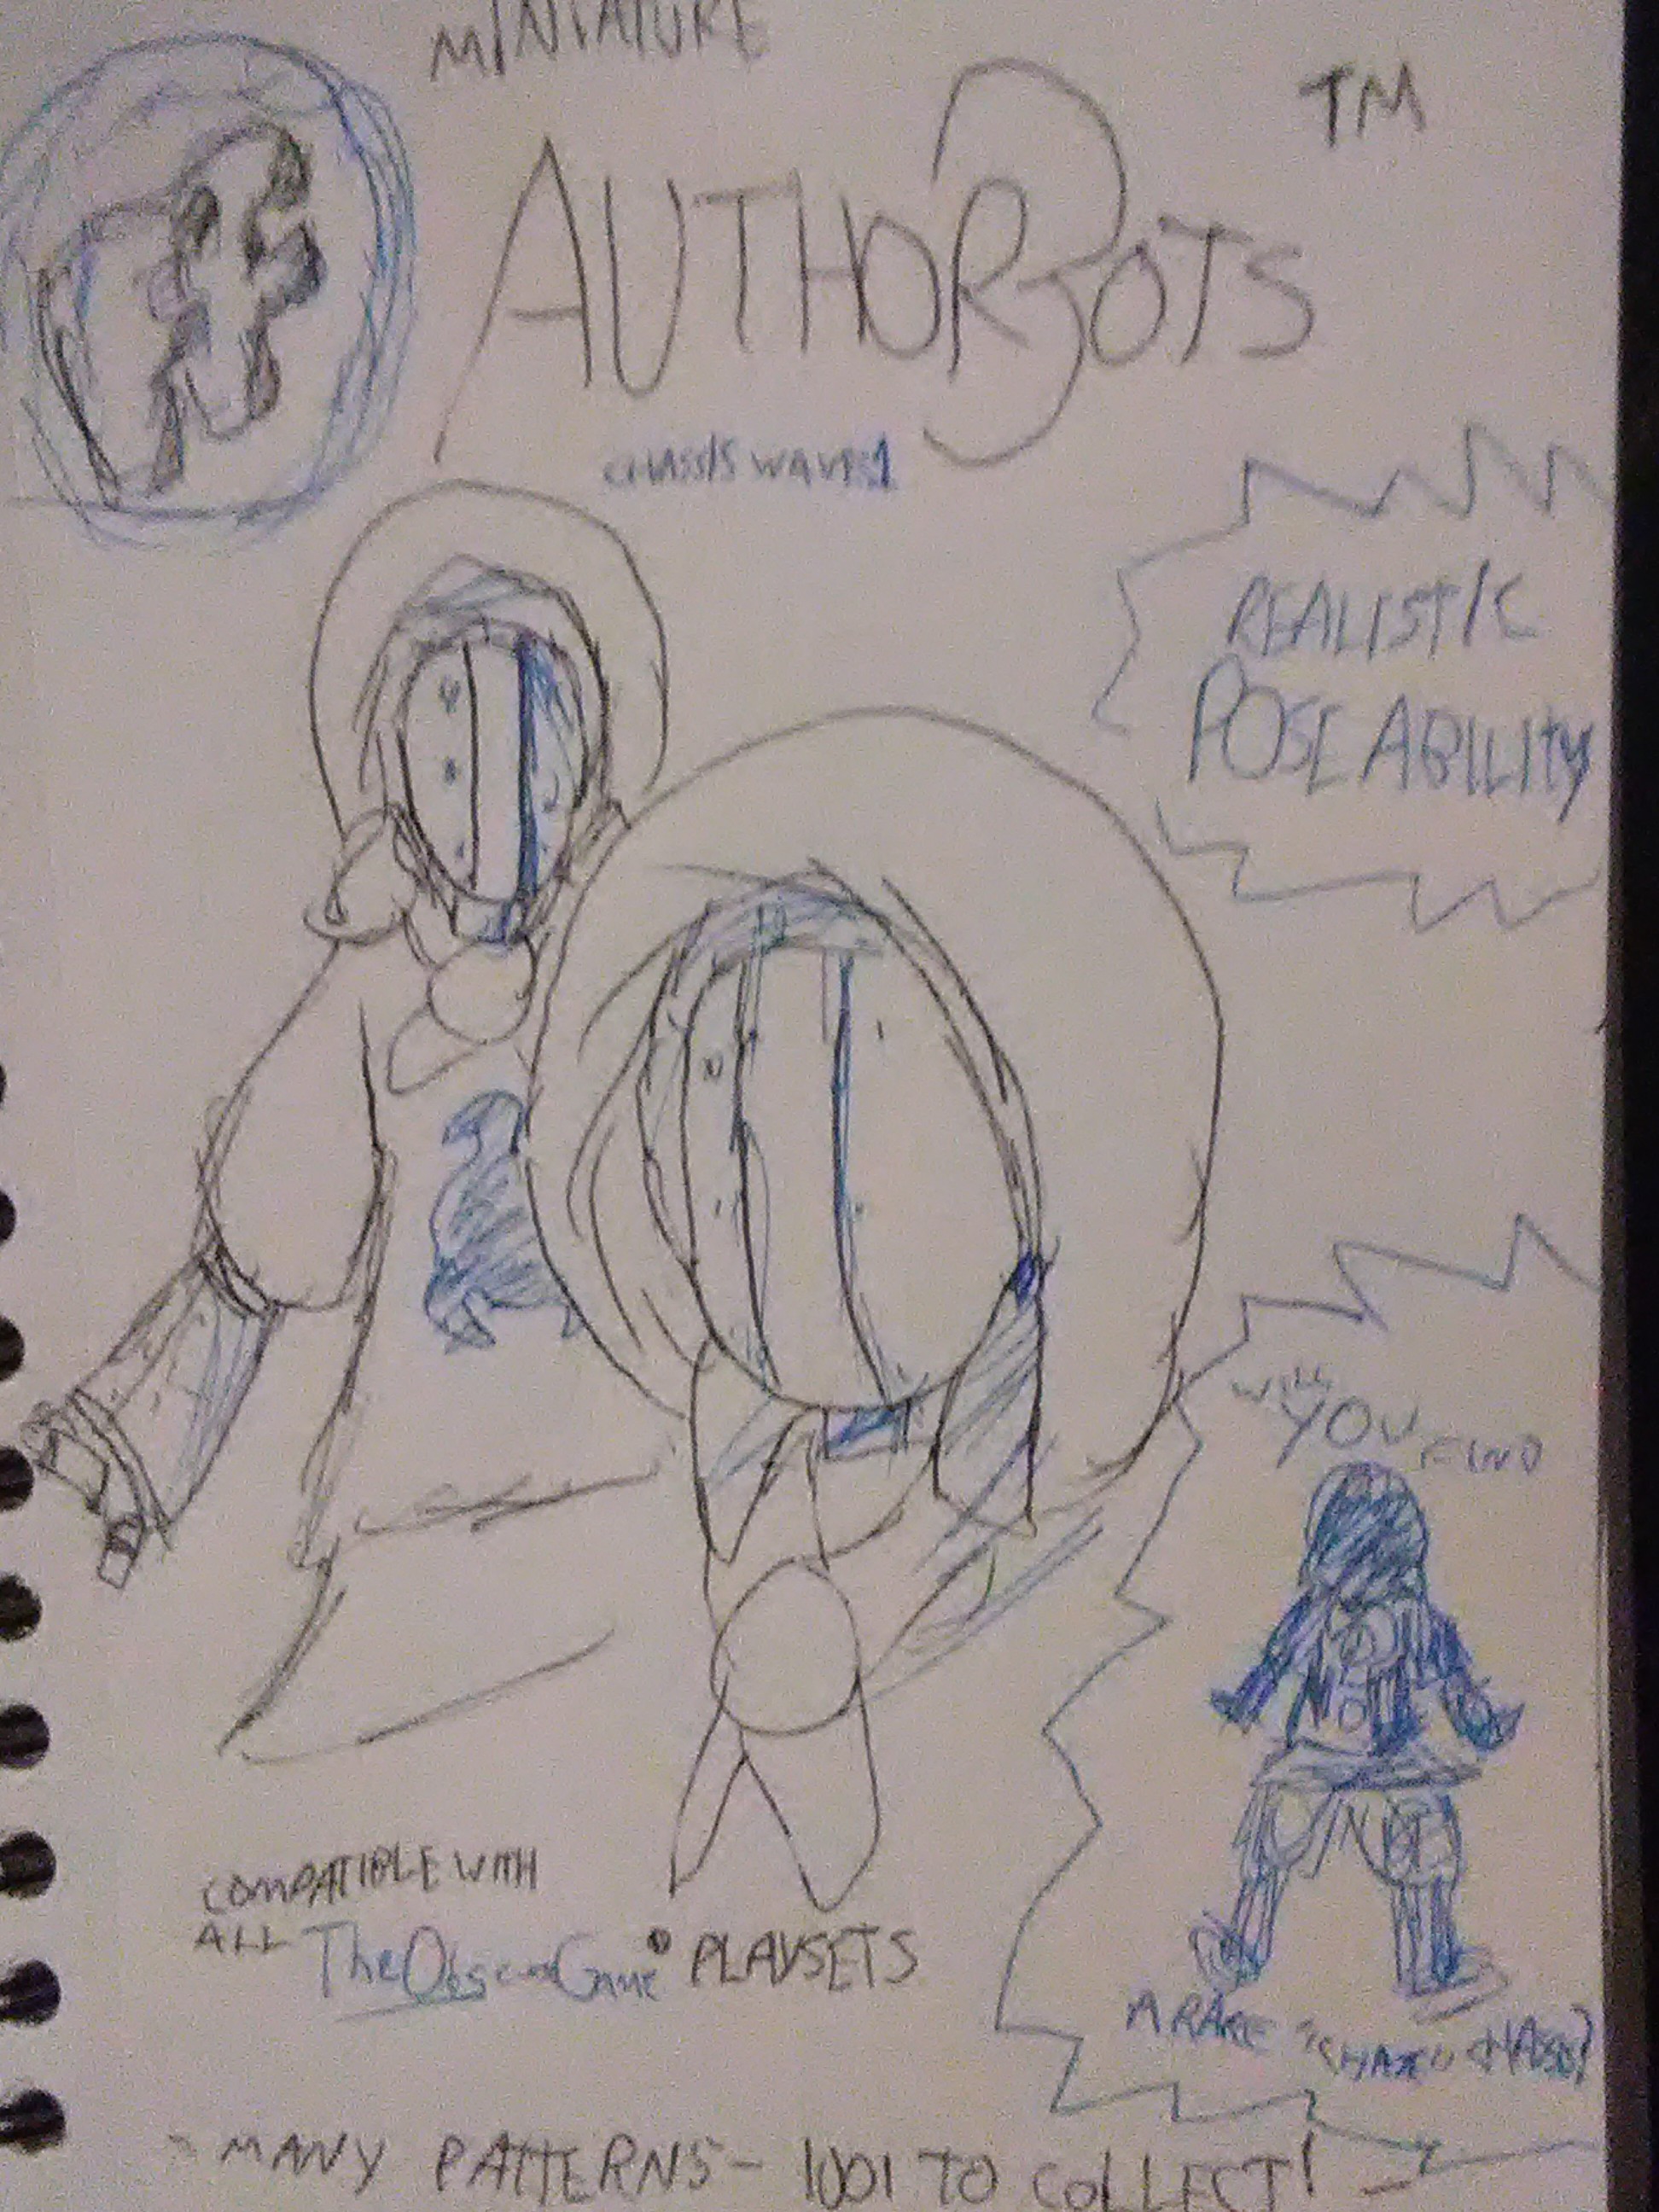 MINIATURE
AUTHORBOTS
TM
CHASSIS WAVE:1
REALISTIC
POSEABILITY
WILL
YOU FIND
A RARE CHASSIS?
COMPATIBLE WITH
ALL TheObscureGame PLAYSETS
MANY PATTERNS - 1001 TO COLLECT! -